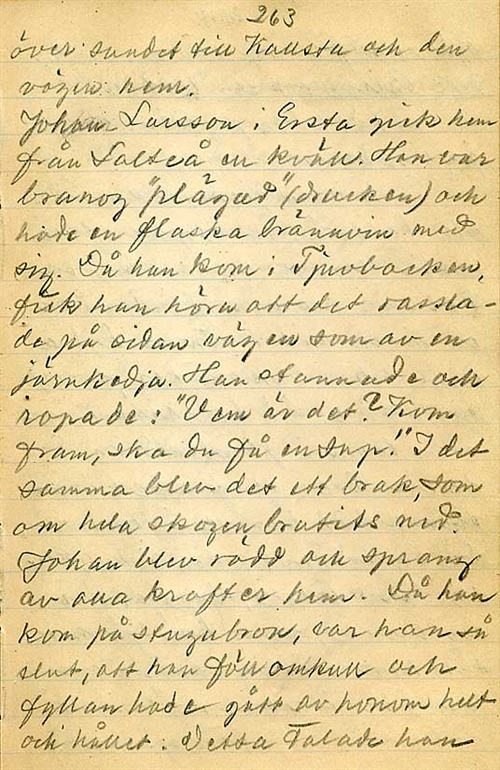 263
över sundet till Kallsta och den
vägen hem.
Johan Larsson i Ersta gick hem
från Salteå en kväll. Han var
branog "plägad" (drucken) och
hade en flaska brännvin med
sig. Då han kom i Tjuvbacken,
fick han höra att det rassla-
de på sidan vägen som av en
järnkedja. Han stannade och
ropade: "Vem är det? Kom
fram, ska du få en sup!" I det
samma blev det ett brak, som
om hela skogen brutits ned.
Johan blev rädd och sprang
av alla krafter hem. Då han
kom på stugubron, var han så
slut, att han föll omkull och
fyllan hade gått av honom helt
och hållet. Detta talade han